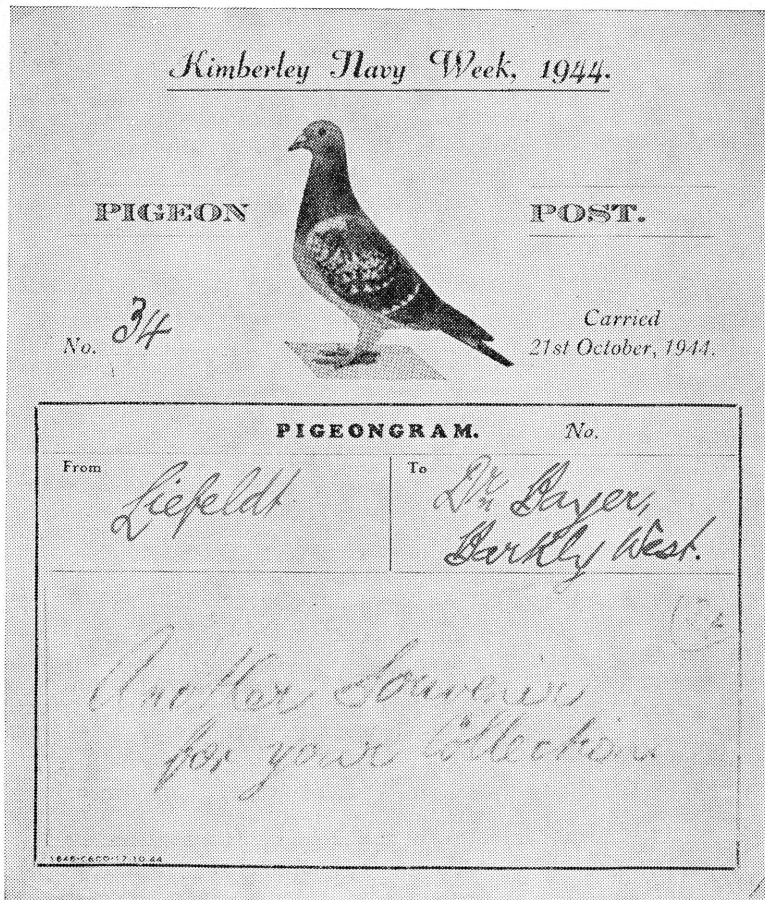 Kimberley Navy Week, 1944.
PIGEON POST.
No. 34
Carried
21st October, 1944.
PIGEONGRAM. No.
From Liefeldt
To Dr. Bayer,
Barkly West.
Another Souvenir
for your Collection.